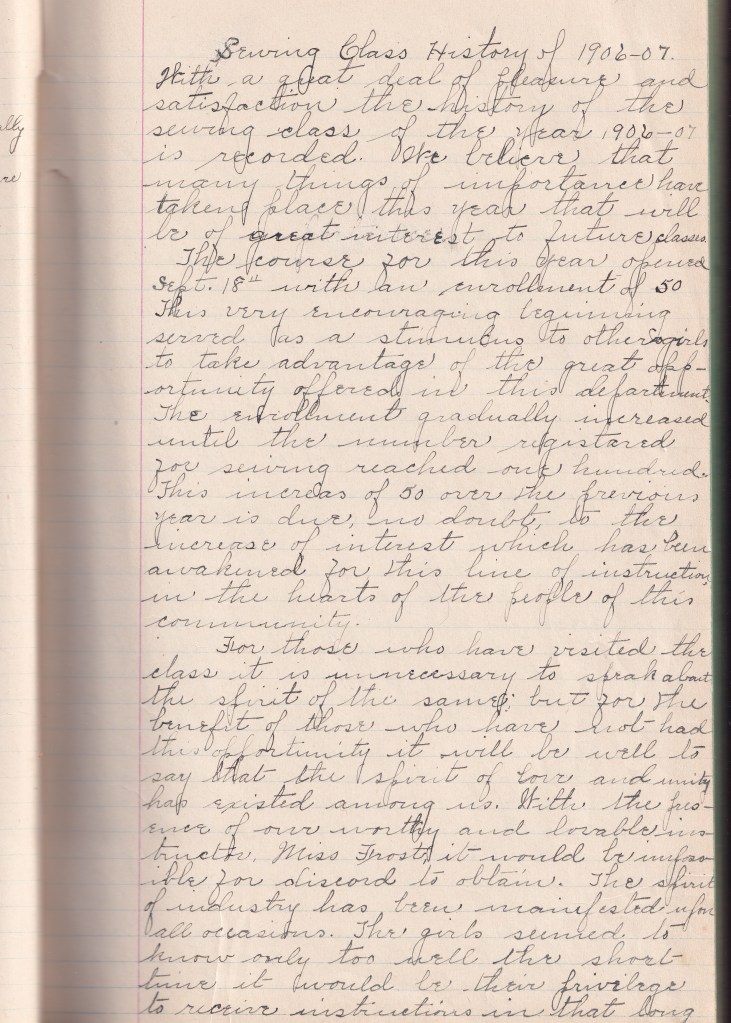 ally
re
Sewing Class History of 1906-07.
With a great deal of pleasure and
satisfaction the history of the
sewing class of the year 1906-07
is recorded. We believe that
many things of importance have
taken place this year that will
be of great interest to future classes.
The course for this year opened
Sept. 18th with an enrollment of 50
This very encouraging beginning
served as a stimulus to other girls
to take advantage of the great opp-
ortunity offered in this department.
The enrollment gradually increased
until the number registared
for sewing reached one hundred.
This increas of 50 over the previous
year is due, no doubt, to the
increase of interest which has been
awakened for this line of instruction,
in the hearts of the people of this
community.
For those who have visited the
class it is unnecessary to speak about
the spirit of the same; but for the
benefit of those who have not had
this opportunity it will be well to
say that the spirit of love and unity
has existed among us. With the pres-
ence of our worthy and lovable ins-
tructor, Miss Frost, it would be imposs-
ible for discord to obtain. The spirit
of industry has been manifested upon
all occasions. The girls seemed to
know only too well the short
time it would be their privilege
to receive instructions in that long